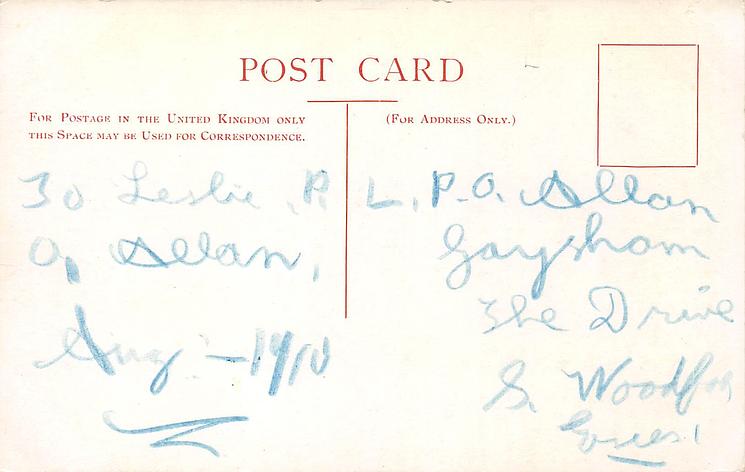 POST CARD
FOR POSTAGE IN THE UNITED KINGDOM ONLY
THIS SPACE MAY BE USED FOR CORRESPONDENCE.
(FOR ADDRESS ONLY.)
To Leslie P.
O. Allan,
Aug - 1910
L. P. O. Allan
Gaysham
The Drive
S. Woodford